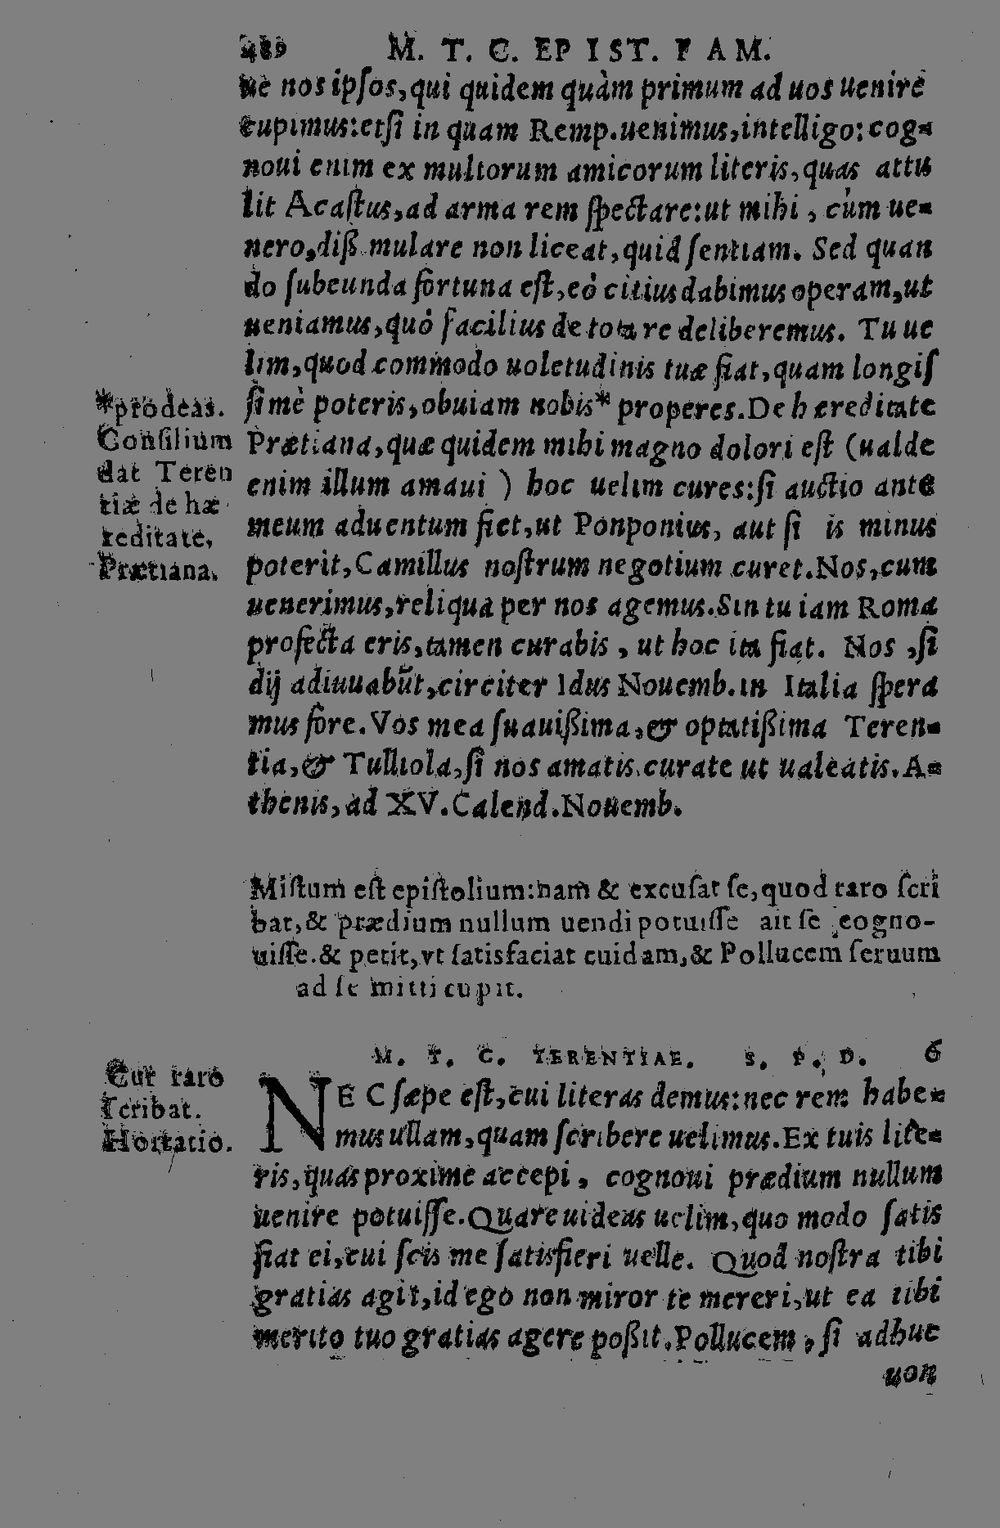 489 M. T. C. EPIST. FAM.
ue nos ipſos, qui quidem quàm primum ad uos uenire
cupimus: etſi in quam Remp. uenimus, intelligo: cog-
noui enim ex multorum amicorum literis, quas attu
lit Acaſtus, ad arma rem ſpectare: ut mihi, cùm ue-
nero, dißimulare non liceat, quid ſentiam. Sed quan
do ſubeunda fortuna eſt, eò citius dabimus operam, ut
ueniamus, quò facilius de tota re deliberemus. Tu ue
lim, quod commodo uoletudinis tuæ fiat, quam longiſ
ſimè poteris, obuiam nobis* properes. De hæreditate
Prætiana, quæ quidem mihi magno dolori eſt (ualde
enim illum amaui) hoc uelim cures: ſi auctio ante
meum aduentum fiet, ut Ponponius, aut ſi is minus
poterit, Camillus noſtrum negotium curet. Nos, cum
uenerimus, reliqua per nos agemus. Sin tu iam Roma
profecta eris, tamen curabis, ut hoc ita fiat. Nos, ſi
dij adiuuabũt, circiter Idus Nouemb. in Italia ſpera
mus fore. Vos mea ſuauißima, & optatißima Teren-
tia, & Tulliola, ſi nos amatis, curate ut ualeatis. A-
thenis, ad XV. Calend. Nouemb.
*prodeas.
Conſilium
dat Teren
tiæ de hæ
reditate,
Prætiana.
Miſtum eſt epiſtolium: nam & excuſat ſe, quod raro ſcri
bat, & prædium nullum uendi potuiſſe ait ſe cogno-
uiſſe. & petit, vt ſatisfaciat cuidam, & Pollucem ſeruum
ad ſe mitti cupit.
M. T. C. TERENTIAE. S. P. D. 6
Cur raro
ſcribat.
Hortatio.
NEC ſæpe eſt, cui literas demus: nec rem habe-
mus ullam, quam ſcribere uelimus. Ex tuis lite-
ris, quas proxime accepi, cognoui prædium nullum
uenire potuiſſe. Quare uideas uelim, quo modo ſatis
fiat ei, cui ſcis me ſatisfieri uelle. Quod noſtra tibi
gratias agit, id ego non miror te mereri, ut ea tibi
merito tuo gratias agere poßit. Pollucem, ſi adhuc
non